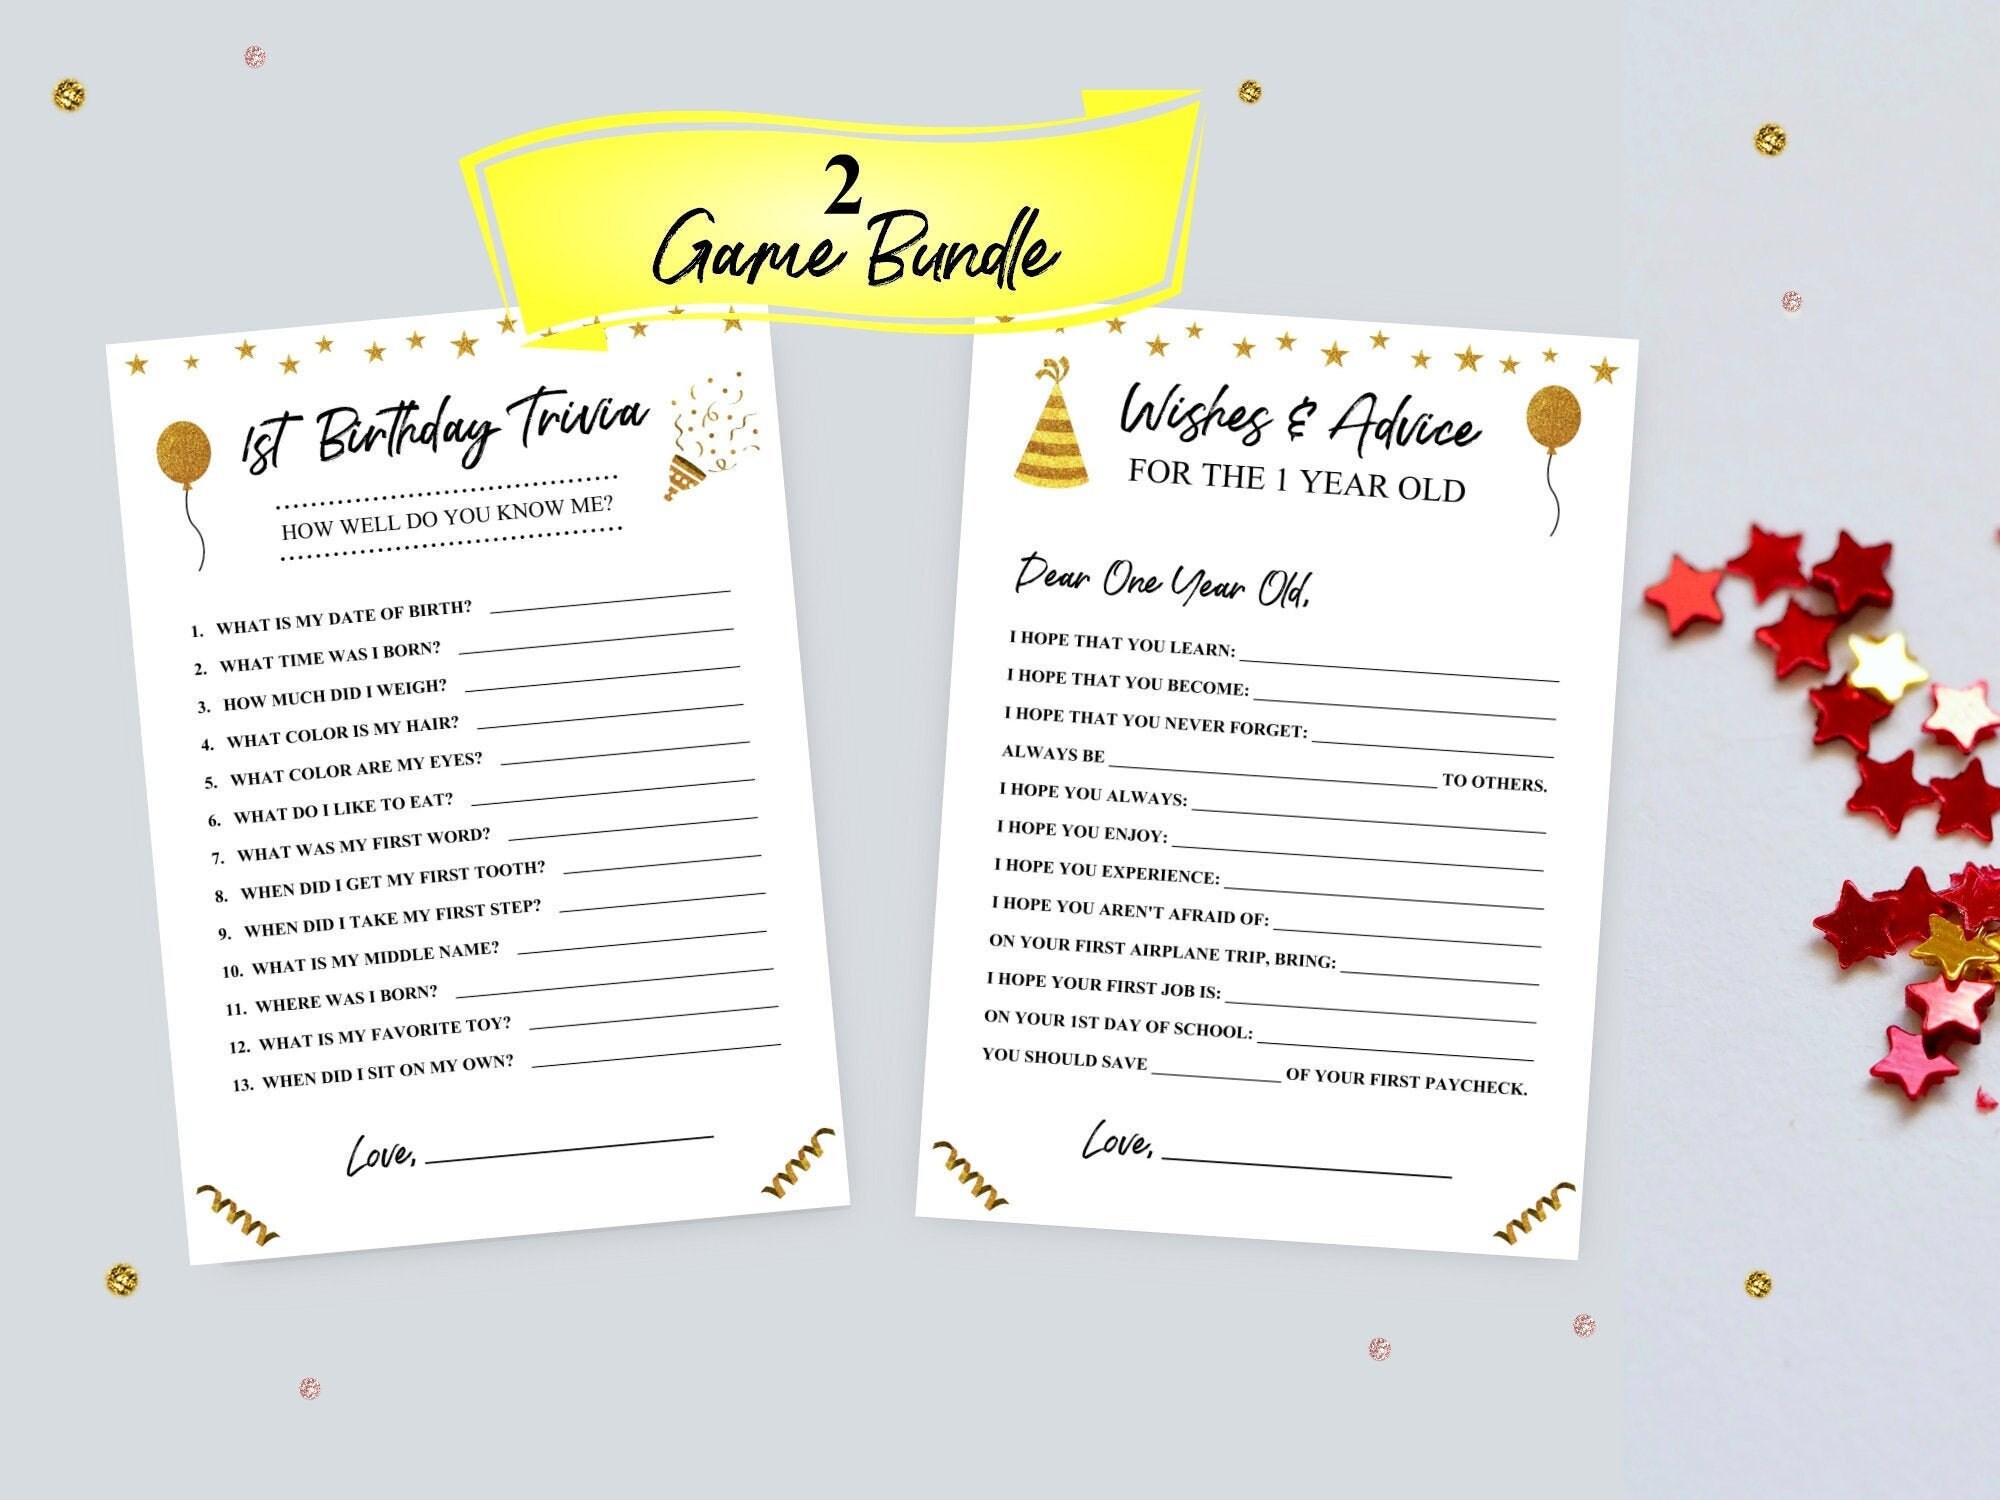 2
Game Bundle
1st Birthday Trivia
HOW WELL DO YOU KNOW ME?
1. WHAT IS MY DATE OF BIRTH?
2. WHAT TIME WAS I BORN?
3. HOW MUCH DID I WEIGH?
4. WHAT COLOR IS MY HAIR?
5. WHAT COLOR ARE MY EYES?
6. WHAT DO I LIKE TO EAT?
7. WHAT WAS MY FIRST WORD?
8. WHEN DID I GET MY FIRST TOOTH?
9. WHEN DID I TAKE MY FIRST STEP?
10. WHAT IS MY MIDDLE NAME?
11. WHERE WAS I BORN?
12. WHAT IS MY FAVORITE TOY?
13. WHEN DID I SIT ON MY OWN?
Love,
Wishes & Advice
FOR THE 1 YEAR OLD
Dear One Year Old,
I HOPE THAT YOU LEARN:
I HOPE THAT YOU BECOME:
I HOPE THAT YOU NEVER FORGET:
ALWAYS BE TO OTHERS.
I HOPE YOU ALWAYS:
I HOPE YOU ENJOY:
I HOPE YOU EXPERIENCE:
I HOPE YOU AREN'T AFRAID OF:
ON YOUR FIRST AIRPLANE TRIP, BRING:
I HOPE YOUR FIRST JOB IS:
ON YOUR 1ST DAY OF SCHOOL:
YOU SHOULD SAVE OF YOUR FIRST PAYCHECK.
Love,